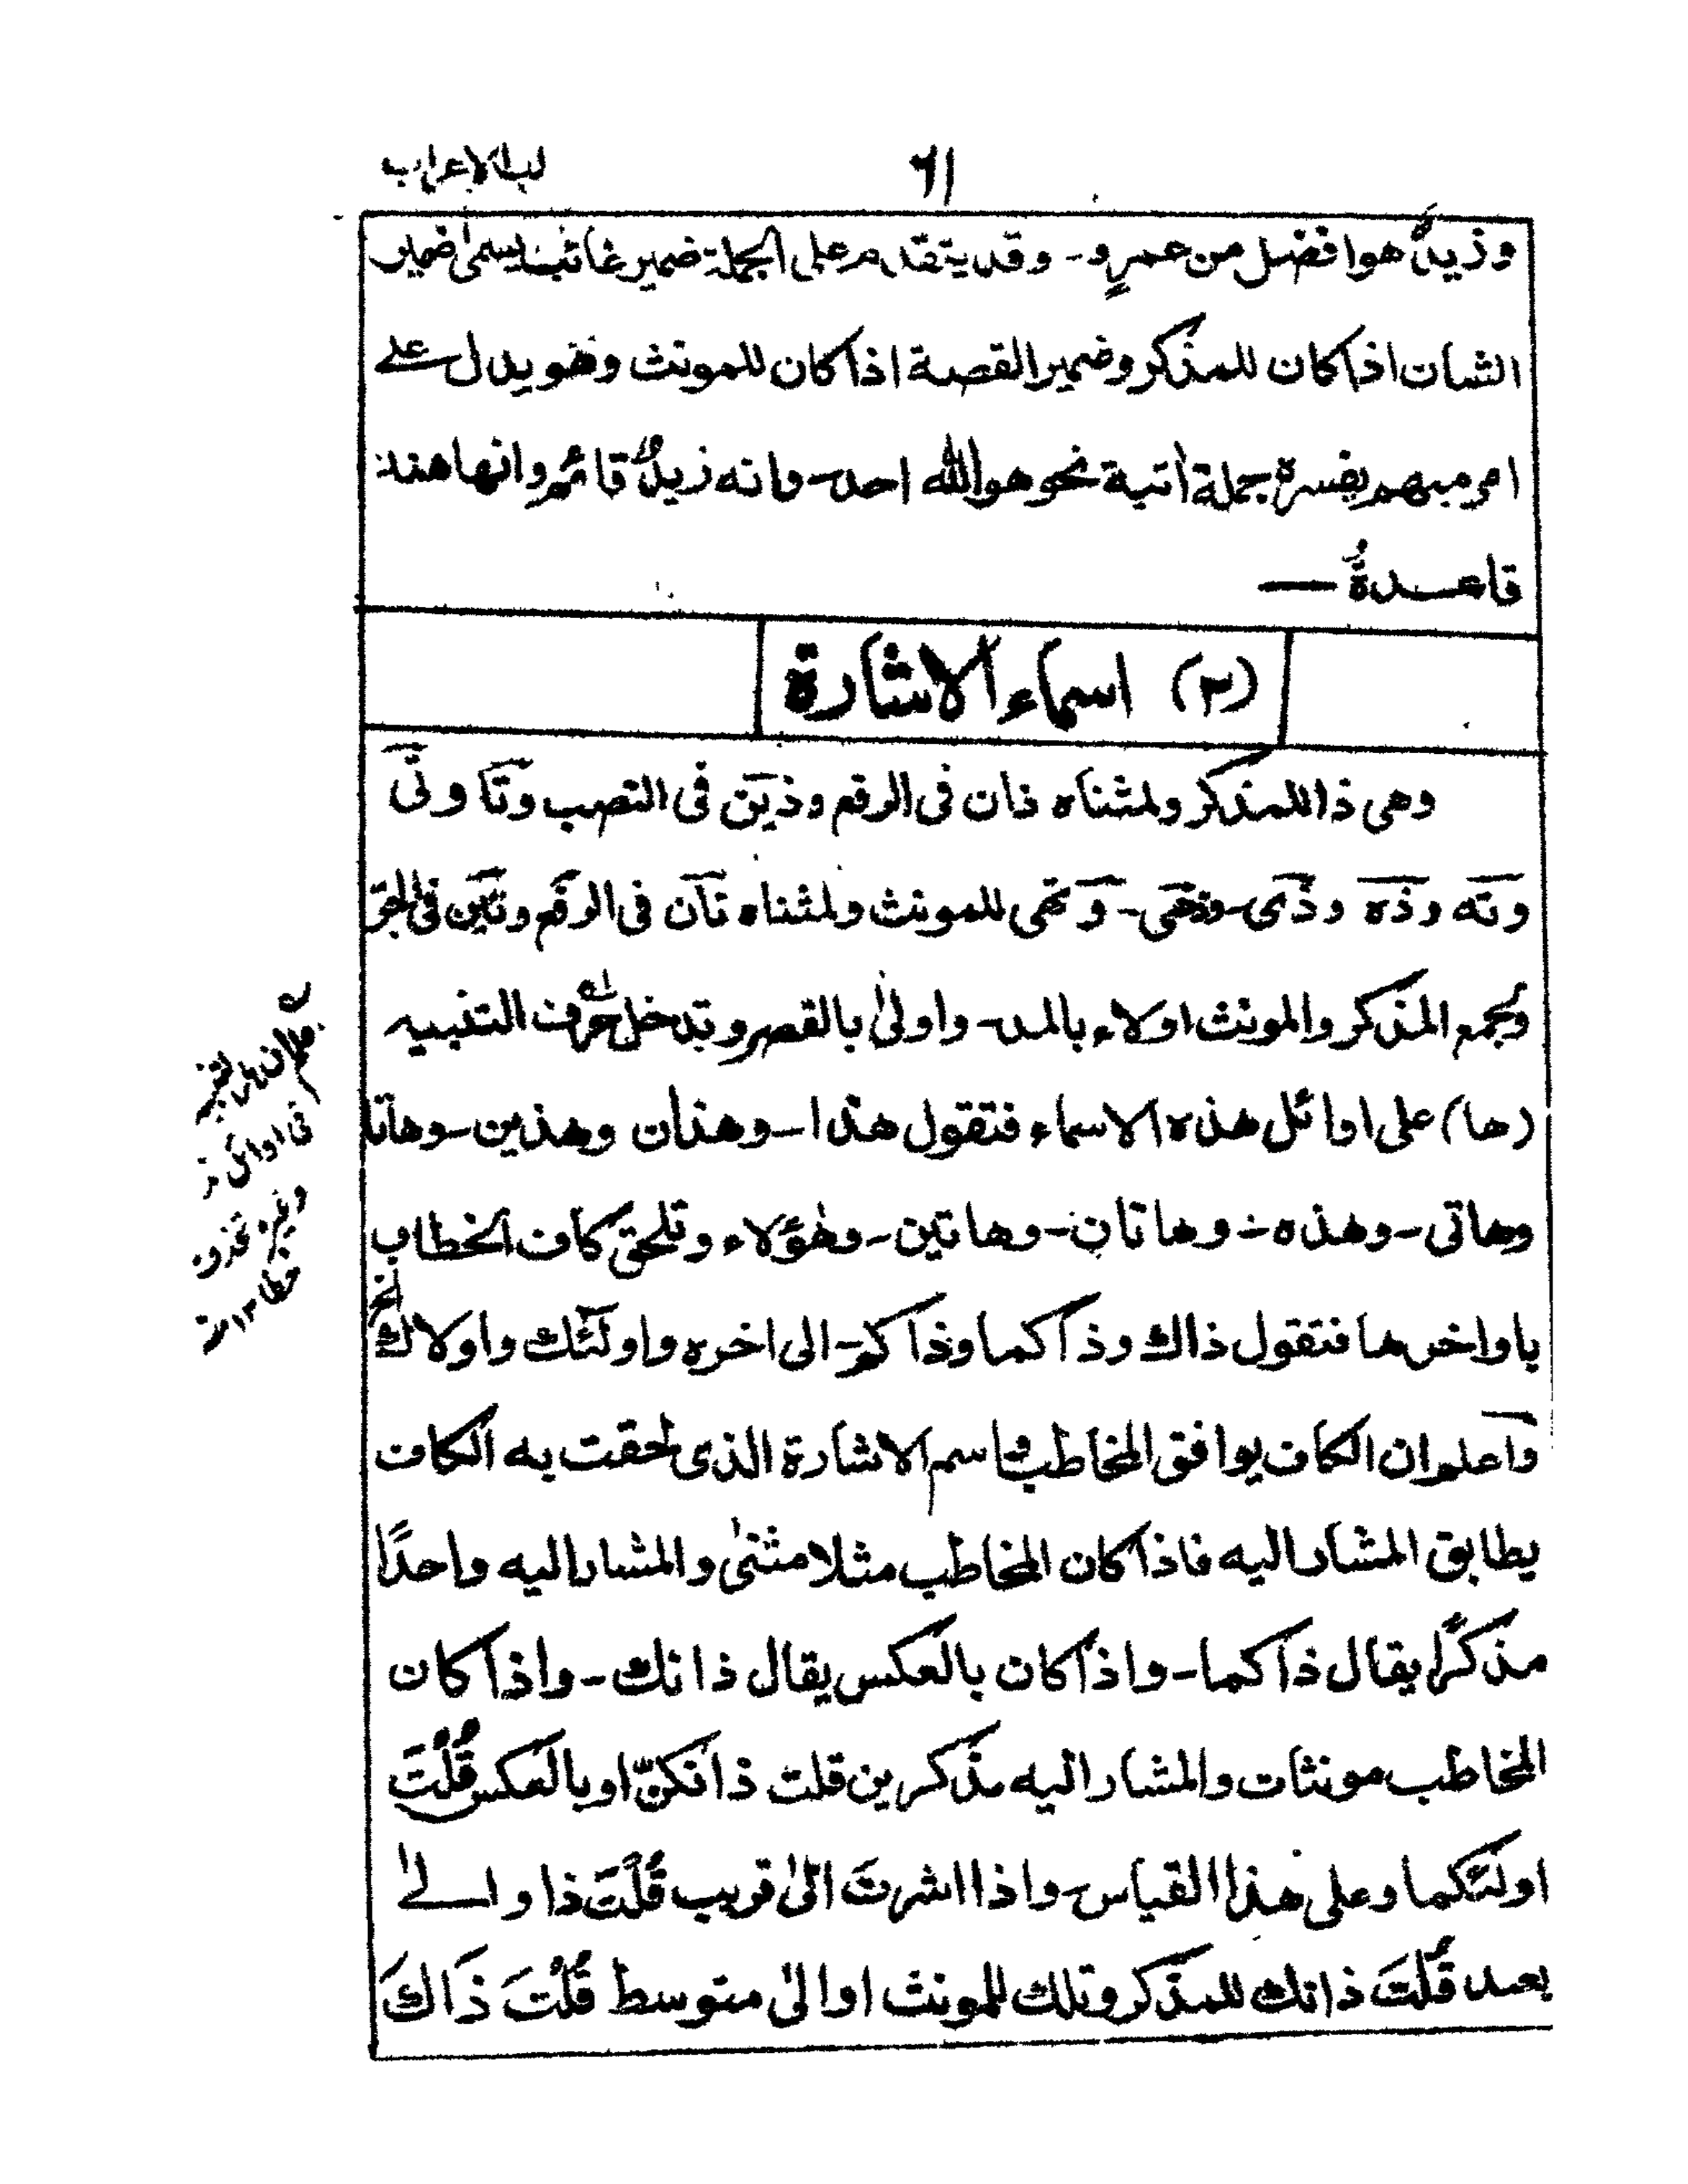 لب الاعراب
٦١
وزيدٌ هو افضل من عمرٍو - وقد يتقدم على الجملة ضمير غائب يسمى ضمير
الشان اذا كان للمذكر وضمير القصة اذا كان للمونث وهو يدل على
امر مبهم يفسره جملة اٰتية نحو هو الله احد - وانه زيدٌ قائم وانها هند
قاعدةٌ —
(٢) اسماء الاشارة
وهى ذا للمذكر ولمثناه ذان فى الرفع وذين فى النصب وتا وتى
وته وذه وذى - وذهى - وتهى للمونث ولمثناه تان فى الرفع وتين فى الجر
وبجمع المذكر والمونث اولاء بالمد - واولىٰ بالقصر وتدخل حرف التنبيه
(ها) على اوائل هذه الاسماء فتقول هذا - وهذان وهذين - وهاتا
وهاتى - وهذه - وهاتان - وهاتين - وهٰؤلاء وتلحق كاف الخطاب
باواخرها فتقول ذاك وذاكما وذاكم - الى اخره واولٰئك واولاك الخ
واعلم ان الكاف يوافق المخاطب واسم الاشارة الذى لحقت به الكاف
يطابق المشار اليه فاذا كان المخاطب مثلا مثنىٰ والمشار اليه واحدًا
مذكرًا يقال ذاكما - واذا كان بالعكس يقال ذانك - واذا كان
المخاطب مونثات والمشار اليه مذكرين قلت ذانكنّ او بالعكس قُلْتَ
اولئكما وعلى هذا القياس - واذا اشرتَ الىٰ قريب قُلْتَ ذا و الىٰ
بعد قُلْتَ ذانك للمذكر وتلك للمونث او الىٰ متوسط قُلْتَ ذَاكَ
فى اوائل